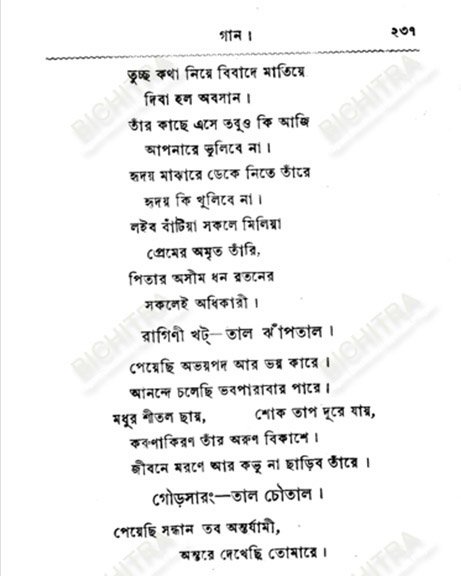 গান ।
২৩৭
তুচ্ছ কথা নিয়ে বিবাদে মাতিয়ে
দিবা হল অবসান ।
তাঁর কাছে এসে তবুও কি আজি
আপনারে ভুলিবে না ।
হৃদয় মাঝারে ডেকে নিতে তাঁরে
হৃদয় কি খুলিবে না ।
লইব বাঁটিয়া সকলে মিলিয়া
প্রেমের অমৃত তাঁরি,
পিতার অসীম ধন রতনের
সকলেই অধিকারী ।
রাগিণী খট্—তাল ঝাঁপতাল ।
পেয়েছি অভয়পদ আর ভয় কারে ।
আনন্দে চলেছি ভবপারাবার পারে ।
মধুর শীতল ছায়, শোক তাপ দূরে যায়,
করুণাকিরণ তাঁর অরুণ বিকাশে ।
জীবনে মরণে আর কভু না ছাড়িব তাঁরে ।
গৌড়সারং—তাল চৌতাল ।
পেয়েছি সন্ধান তব অন্তর্যামী,
অন্তরে দেখেছি তোমারে ।
BICHITRA
BICHITRA
BICHITRA
BICHITRA
BICHITRA
BICHITRA